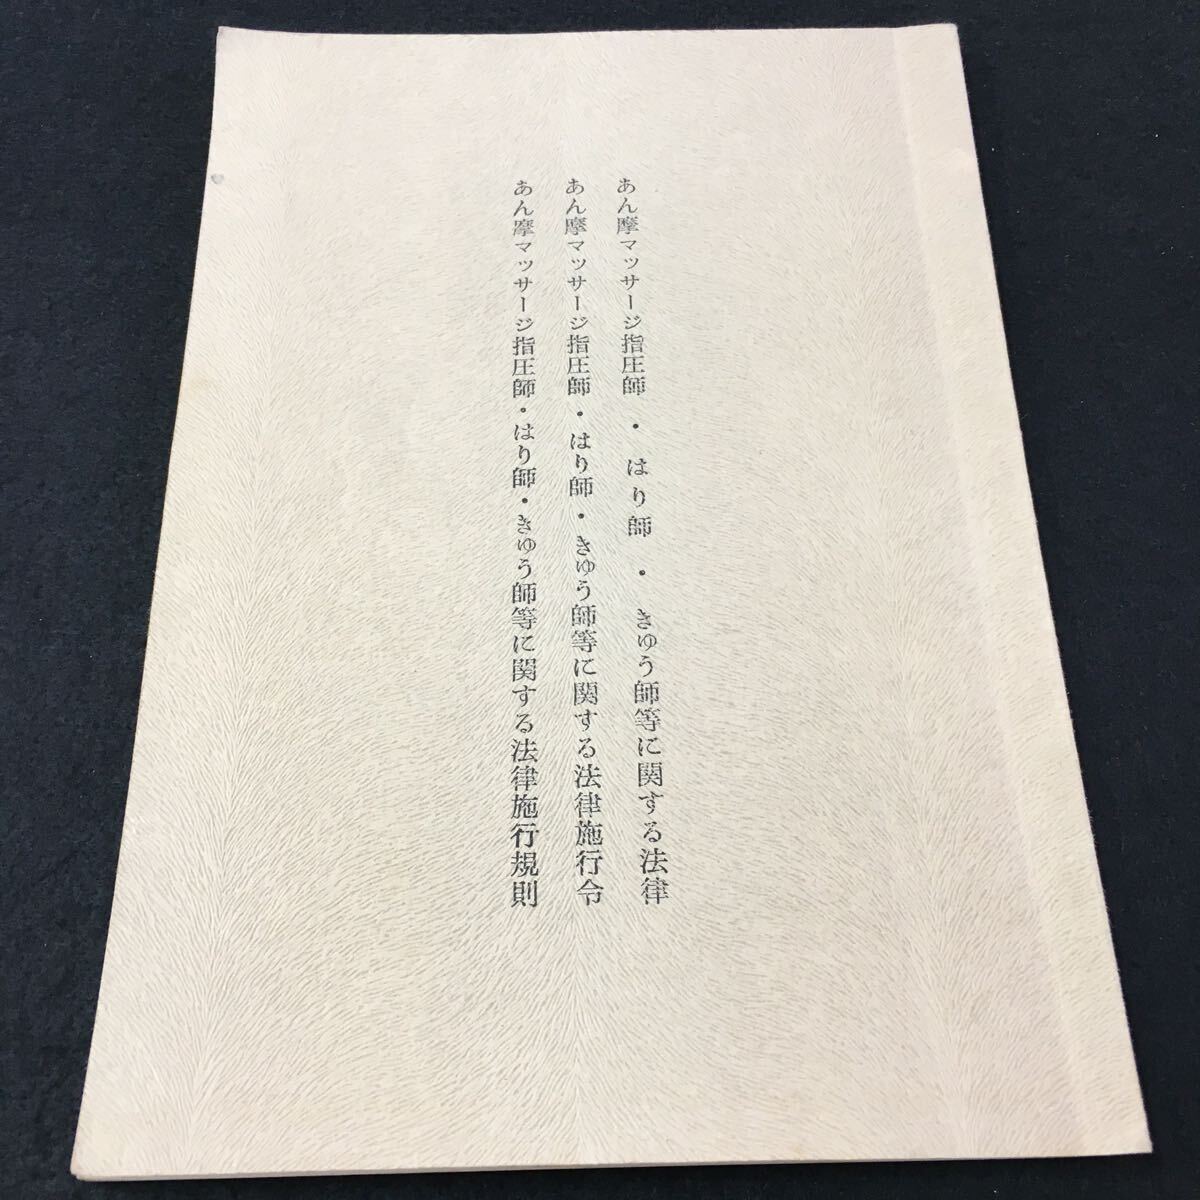 あん摩マッサージ指圧師・はり師・きゅう師等に関する法律
あん摩マッサージ指圧師・はり師・きゅう師等に関する法律施行令
あん摩マッサージ指圧師・はり師・きゅう師等に関する法律施行規則